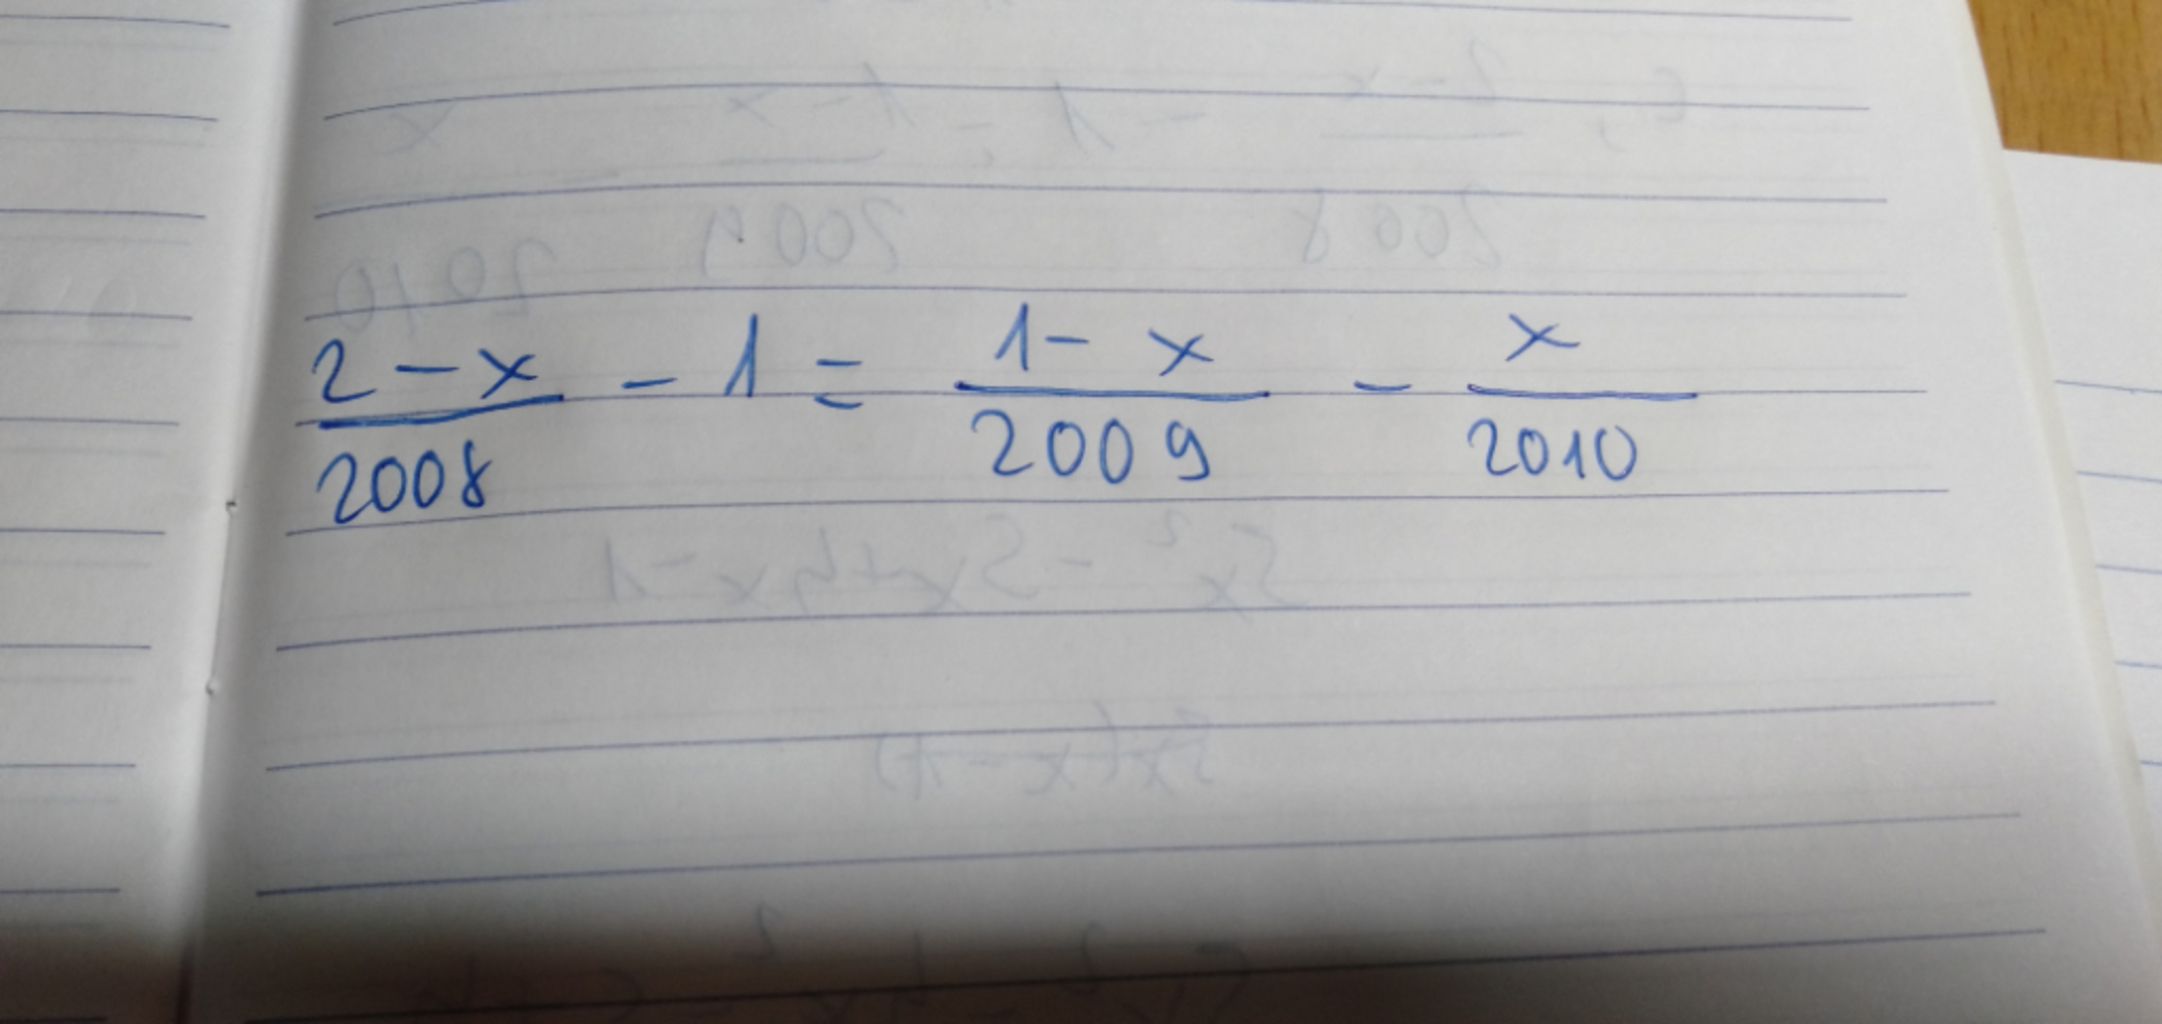 2 - x / 2008 - 1 = 1 - x / 2009 - x / 2010